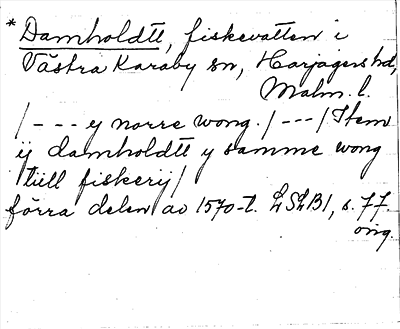 * Damholdtt, fiskevatten i
Västra Karaby sn, Harjagers hd,
Malm. l.
/--- y norre wong. /---/ Item
ij damholdtt y samme wong
tiill fiskerij/
förra delen av 1570-t. LSLB1, s. 77.
orig.